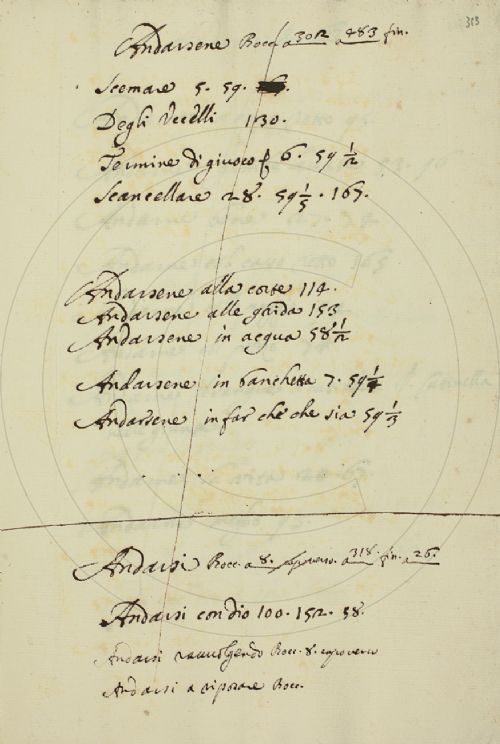 313
Andarsene Bocc. a 302 a 483 fin.
Scemare 5. 59.
Degli Uccelli 130.
Termine di giuoco 6. 59 1/2
Scancellare 28. 59 1/5. 165.
Andarsene alla corte 114.
Andarsene alle grida 153
Andarsene in acqua 58 1/2
Andarsene in banchetta 7. 59 1/4
Andarsene in far che che sia 59 1/3
Andarsi Bocc. a 8. a 318. fin. a 26.
Andarsi con dio 100. 152. 58.
Andarsi ravvolgendo Bocc. 8. capoverso
Andarsi a riposare Bocc.